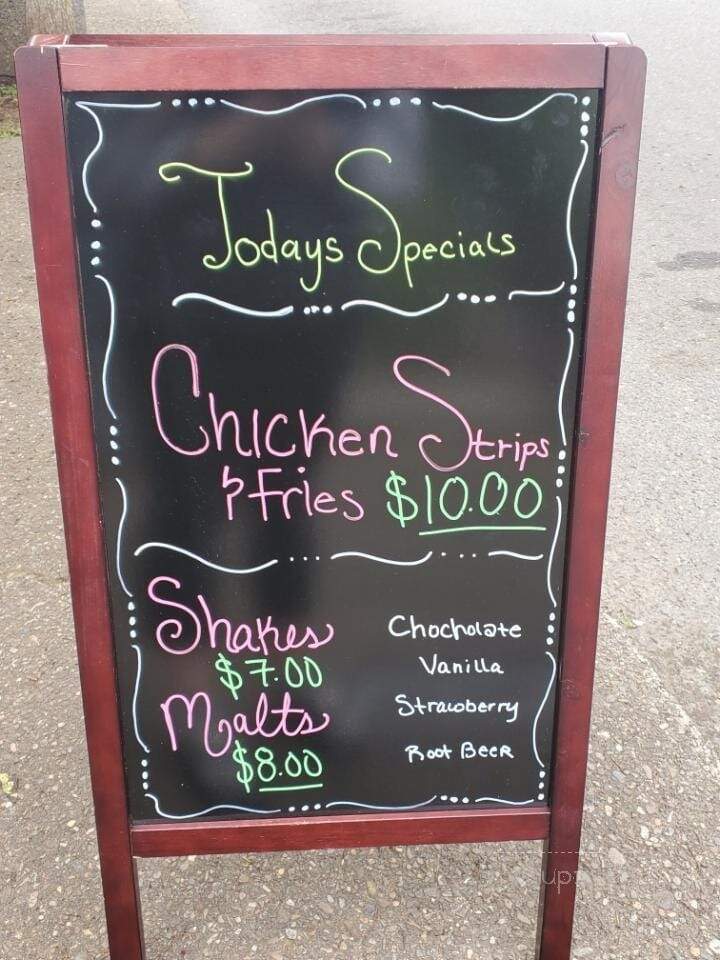 Todays Specials
Chicken Strips
& Fries $10.00
Shakes
$7.00
Malts
$8.00
Chocholate
Vanilla
Strawberry
Root Beer